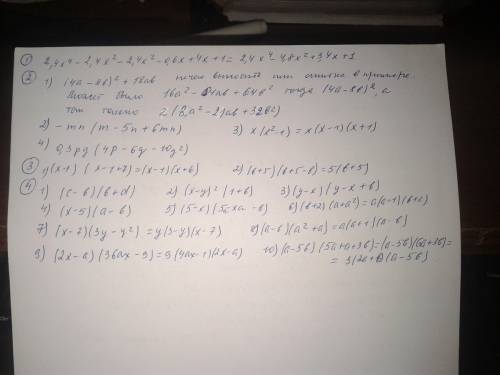 ① 2,4x⁴ - 2,4x² - 2,4x² - 0,6x + 4x + 1 = 2,4x⁴ - 4,8x² + 3,4x + 1
② 1) (4a - 8b)² + 18ab нечем выносить или ошибка в примере.
Может было 16a² - 64ab + 64b² тогда (4a - 8b)², а
так только 2(8a² - 21ab + 32b²)
2) -mn(m - 5n + 6mn) 3) x(x² - 1) = x(x - 1)(x + 1)
4) 0,3pq(4p - 6q - 10q²)
③ 1) (x - 1)(x - 1 + 7) = (x - 1)(x + 6) 2) (b + 5)(b + 5 - b) = 5(b + 5)
④ 1) (c - b)(b + d) 2) (x - y)²(1 + b) 3) (y - x)(y - x + b)
4) (x - 5)(a - b) 5) (5 - x)(5a - b) 6) (b + 2)(a + a²) = a(a + 1)(b + 2)
7) (x - 7)(3y - y²) = y(3 - y)(x - 7) 8) (a - b)(a² + a) = a(a + 1)(a - b)
9) (2x - a)(36ax - 9) = 9(4ax - 1)(2x - a) 10) (a - 5b)(5a + a + 3b) = (a - 5b)(6a + 3b) =
= 3(2a + b)(a - 5b)